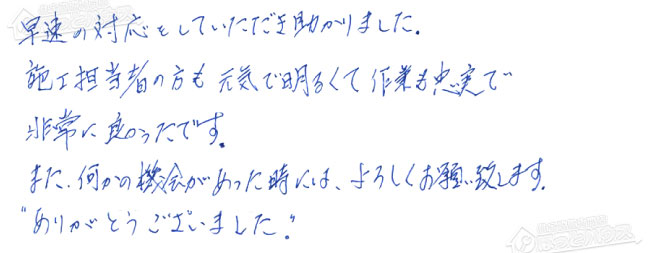 早速の対応をしていただき助かりました.
施工担当者の方も元気で明るくて作業も忠実で
非常に良かったです.
また、何かの機会があった時には、よろしくお願い致します.
"ありがとうございました."